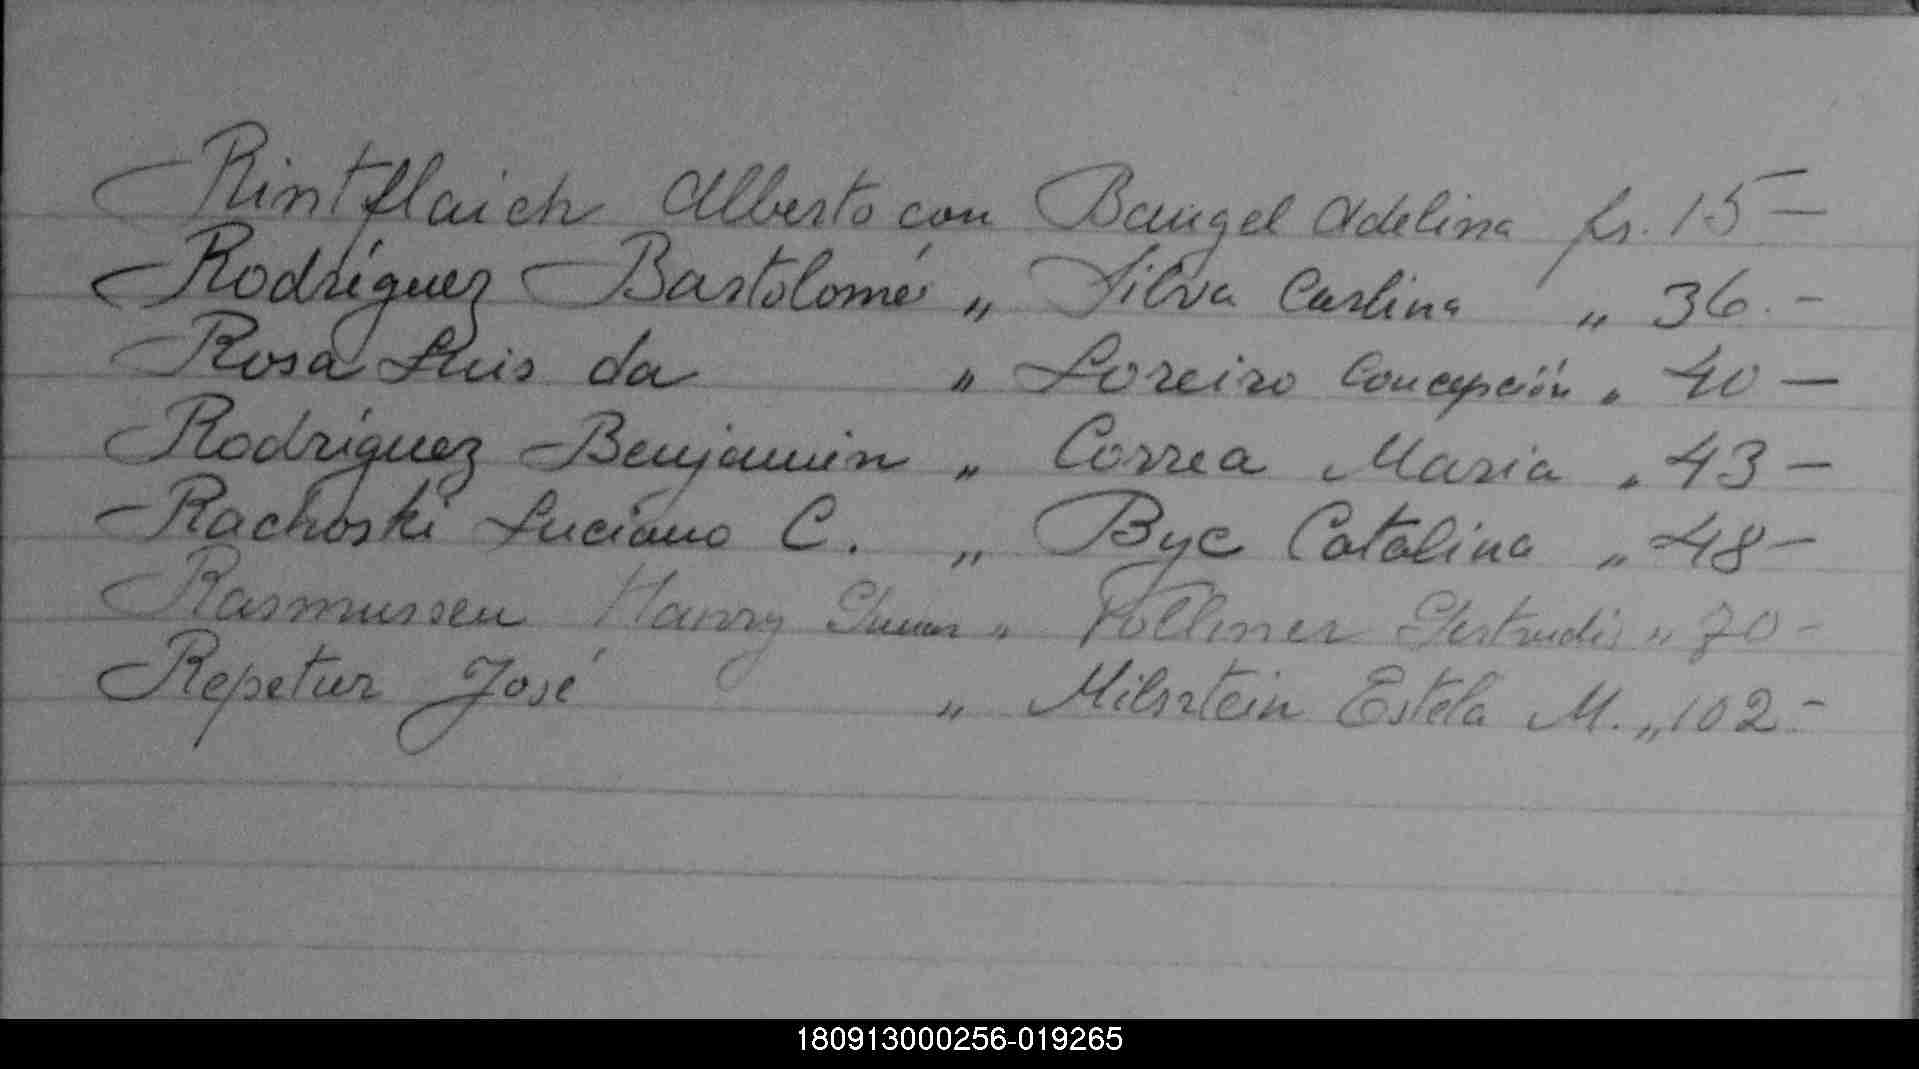 Rintflaich Alberto con Baugel Adelina fs. 15 —
Rodríguez Bartolomé " Silva Carlina " 36. -
Rosa Luis da " Loreiro Concepción " 40 —
Rodríguez Benjamin " Correa Maria " 43 —
Rachoski Luciano C. " Byc Catalina " 48 —
Rasmussen Harry " Vollmer Gertrudis " 70 -
Repetur José " Milsztein Estela M. " 102 -
180913000256-019265